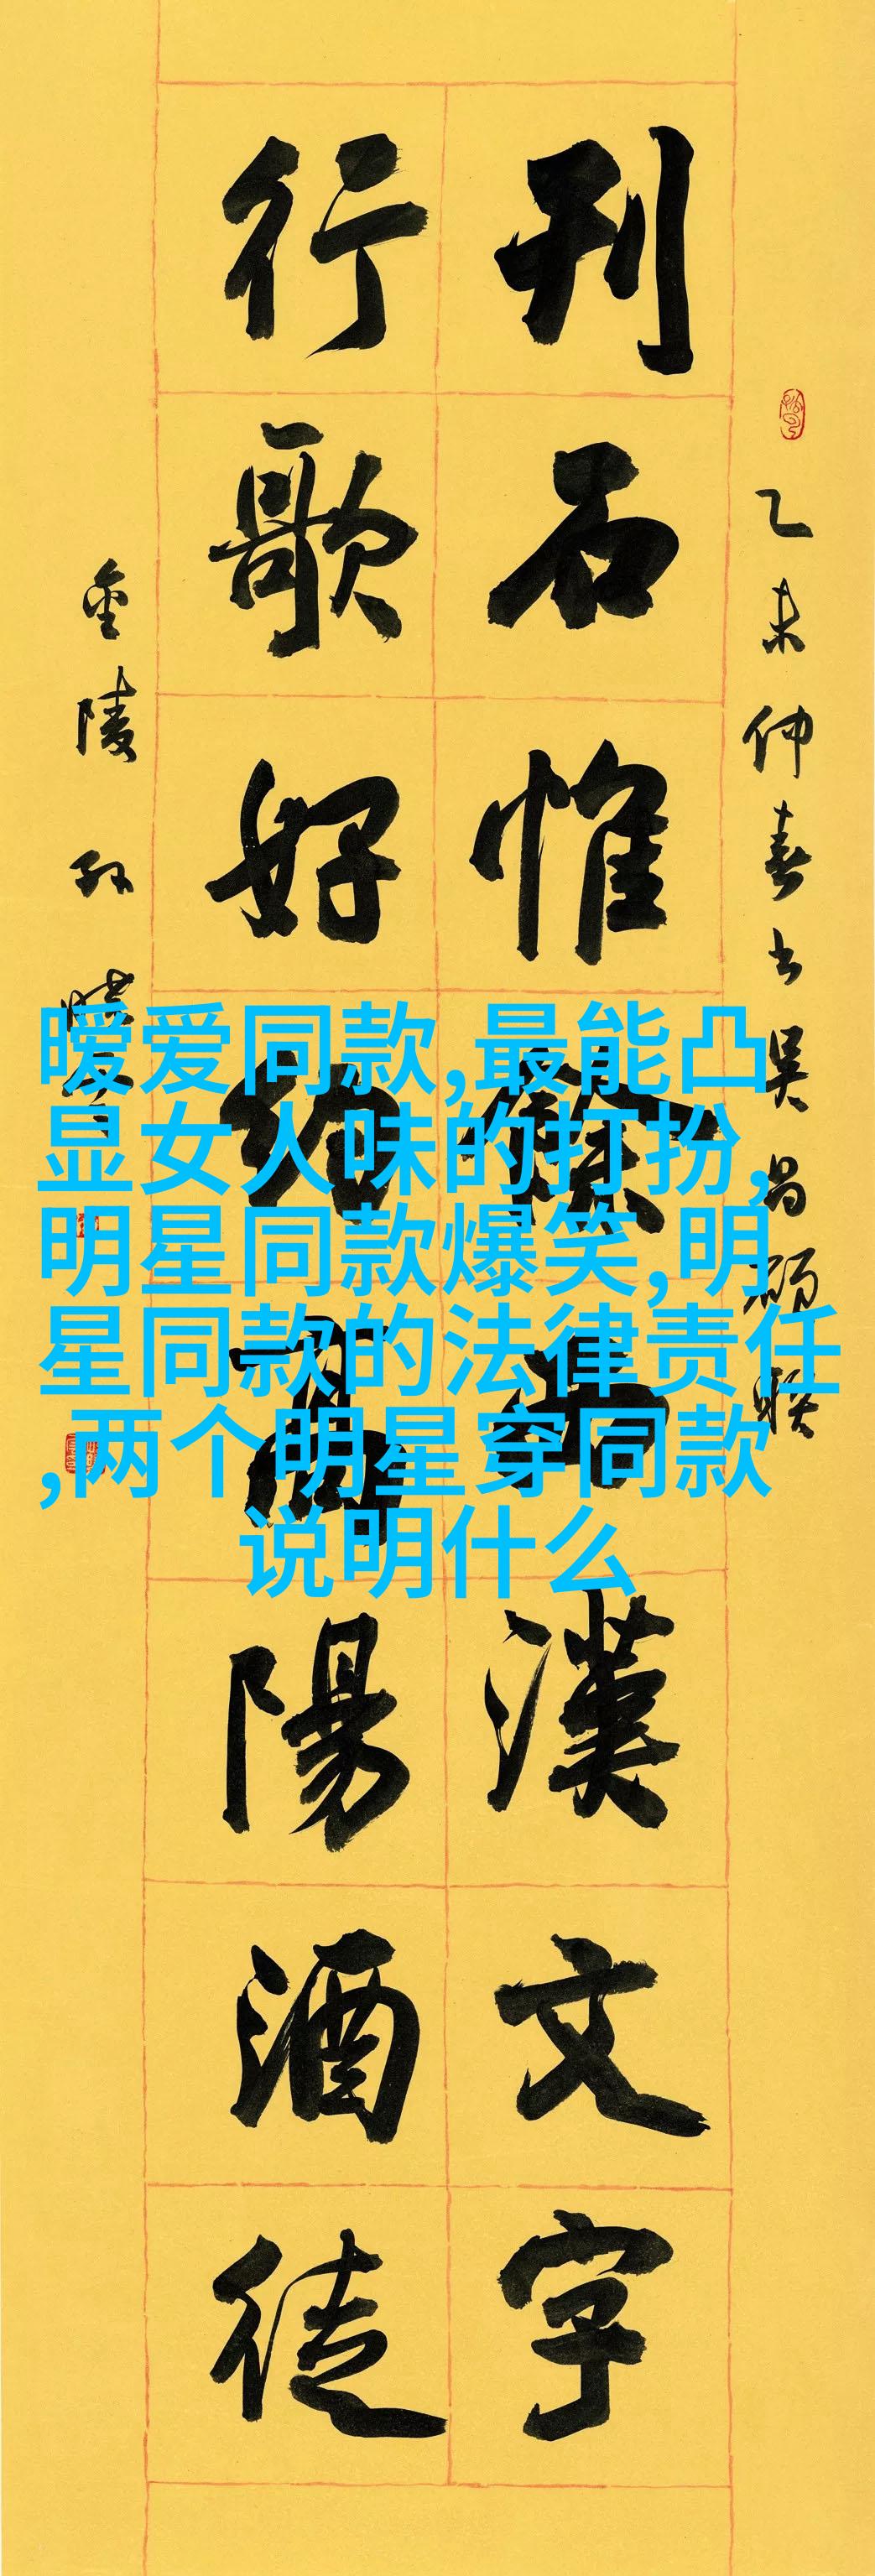 刊石惟餘西漢文字
行歌好約高陽酒徒
乙未仲春書吳昌碩聯
金陵孙晓云
暧爱同款,最能凸
显女人味的打扮,
明星同款爆笑,明
星同款的法律责任
,两个明星穿同款
说明什么